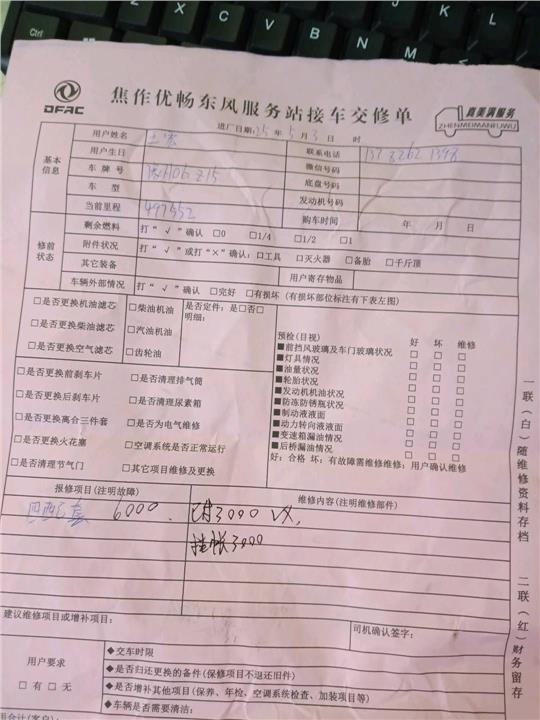 Ctrl
Z
X
C
V
B
N
M
DFAC
焦作优畅东风服务站接车交修单
真美满服务
ZHENMEIMANFUWU
进厂日期: 25 年 5 月 3 日 时
基本信息
用户姓名
联系电话
用户生日
微信号码
车 牌 号
底盘号码
车 型
发动机号码
当前里程 497552
购车时间 年 月 日
修前状态
剩余燃料 打“√”确认 □0 □1/4 □1/2 □1
附件状况 打“√”或打“×”确认:□工具 □灭火器 □备胎 □千斤顶
其它装备
用户寄存物品
车辆外部情况 打“√”确认 □完好 □有损坏（有损坏部位标注有下表左图）
□是否更换机油滤芯
□是否更换柴油滤芯
□是否更换空气滤芯
□柴油机油
□汽油机油
□齿轮油
是否定件：是□否□
明细:
□是否更换前刹车片
□是否更换后刹车片
□是否更换离合三件套
□是否更换火花塞
□是否清理节气门
□是否清理排气筒
□是否清理尿素箱
□是否为电气维修
□空调系统是否正常运行
□其它项目维修及更换
预检(目视) 好 坏 维修
■前挡风玻璃及车门玻璃状况 □ □ □
■灯具情况 □ □ □
■油量状况 □ □ □
■轮胎状况 □ □ □
■发动机机油状况 □ □ □
■防冻防锈瓶状况 □ □ □
■制动液液面 □ □ □
■动力转向液液面 □ □ □
■变速箱漏油情况 □ □ □
■后桥漏油情况 □ □ □
好：合格 坏：有故障需维修维修：用户确认维修
报修项目(注明故障)
维修内容(注明维修部件)
6000
已付3000 VX,
挂帐3000
建议维修项目或增补项目:
司机确认签字:
用户要求
□ 有 □ 无
◆交车时限
◆是否归还更换的备件(保修项目不退还旧件)
◆是否增补其他项目(保养、年检、空调系统检查、加装项目等)
◆车辆是否需要清洁:
一联(白)随维修资料存档
二联(红)财务留存